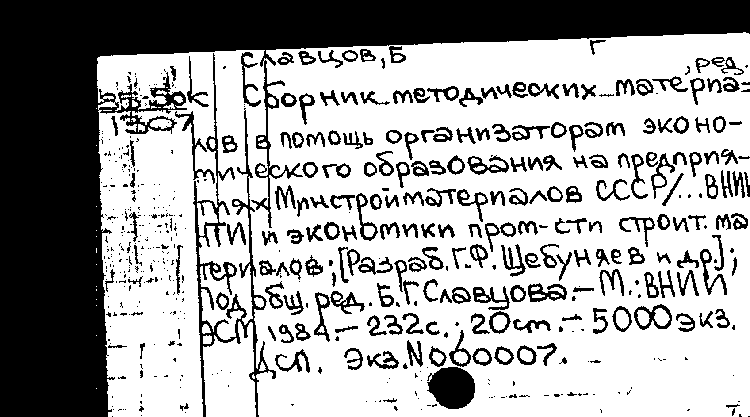 Славцов, Б Г
, ред.
85-50к Сборник методических материа-
1307
лов в помощь организаторам эконо-
мического образования на предприя-
тиях Минстройматериалов СССР/...ВНИИ
НТИ и экономики пром-сти строит. ма
териалов; [Разраб. Г.Ф. Щебуняев и др.];
Под общ. ред. Б.Г. Славцова. – М.: ВНИИ
ЭСМ, 1984. – 232 с.; 20 см. – 5000 экз.
ДСП. Экз. N 000007.